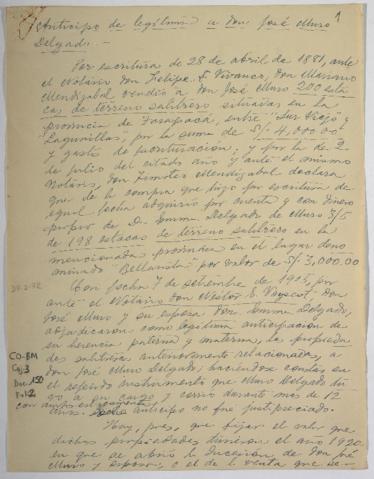 1
Anticipo de legítima a don José Muro
Delgado.-
Por escritura de 28 de abril de 1881, ante
el Notario don Felipe S. Vivanco, don Mariano
Mendizabal vendió a don José Muro 200 esta-
cas de terreno salitrero situadas en la
provincia de Tarapacá, entre "Sur Viejo" y
Lagunillas", por la suma de S/. 4,000.00
y gastos de ; y por la de 2
de julio del citado año y ante el mismo
Notario, don Timoteo Mendizabal declara
que de la compra que hizo por escritura de
igual fecha adquirió por cuenta y con dinero
propio de Da. Emma Delgado de Muro 3/5
de 198 estacas de terreno salitrero en la
mencionada provincia en el lugar deno-
minado "Bellavista" por valor de S/. 3,000.00
Con fecha 7 de setiembre de 1905, por
ante el Notario don Néstor E. don
José Muro y su esposa don Emma Delgado,
adjudicaron como legítima anticipación de
su herencia paterna y materna, la propiedad
de salitreras anteriormente relacionadas, a
don José Muro Delgado; haciendo constar en
el referido instrumento que Muro Delgado tu-
vo a su cargo y corrió durante más de 12
años anticipo no fue justipreciado.
Hay, pues, que fijar el valor que
dichas propiedades tuvieron el año 1920
en que se abrió la sucesión de don José
Muro y esposa, o el de la venta que se-
CO-BM
Caj:3
Doc:150
Fol:2